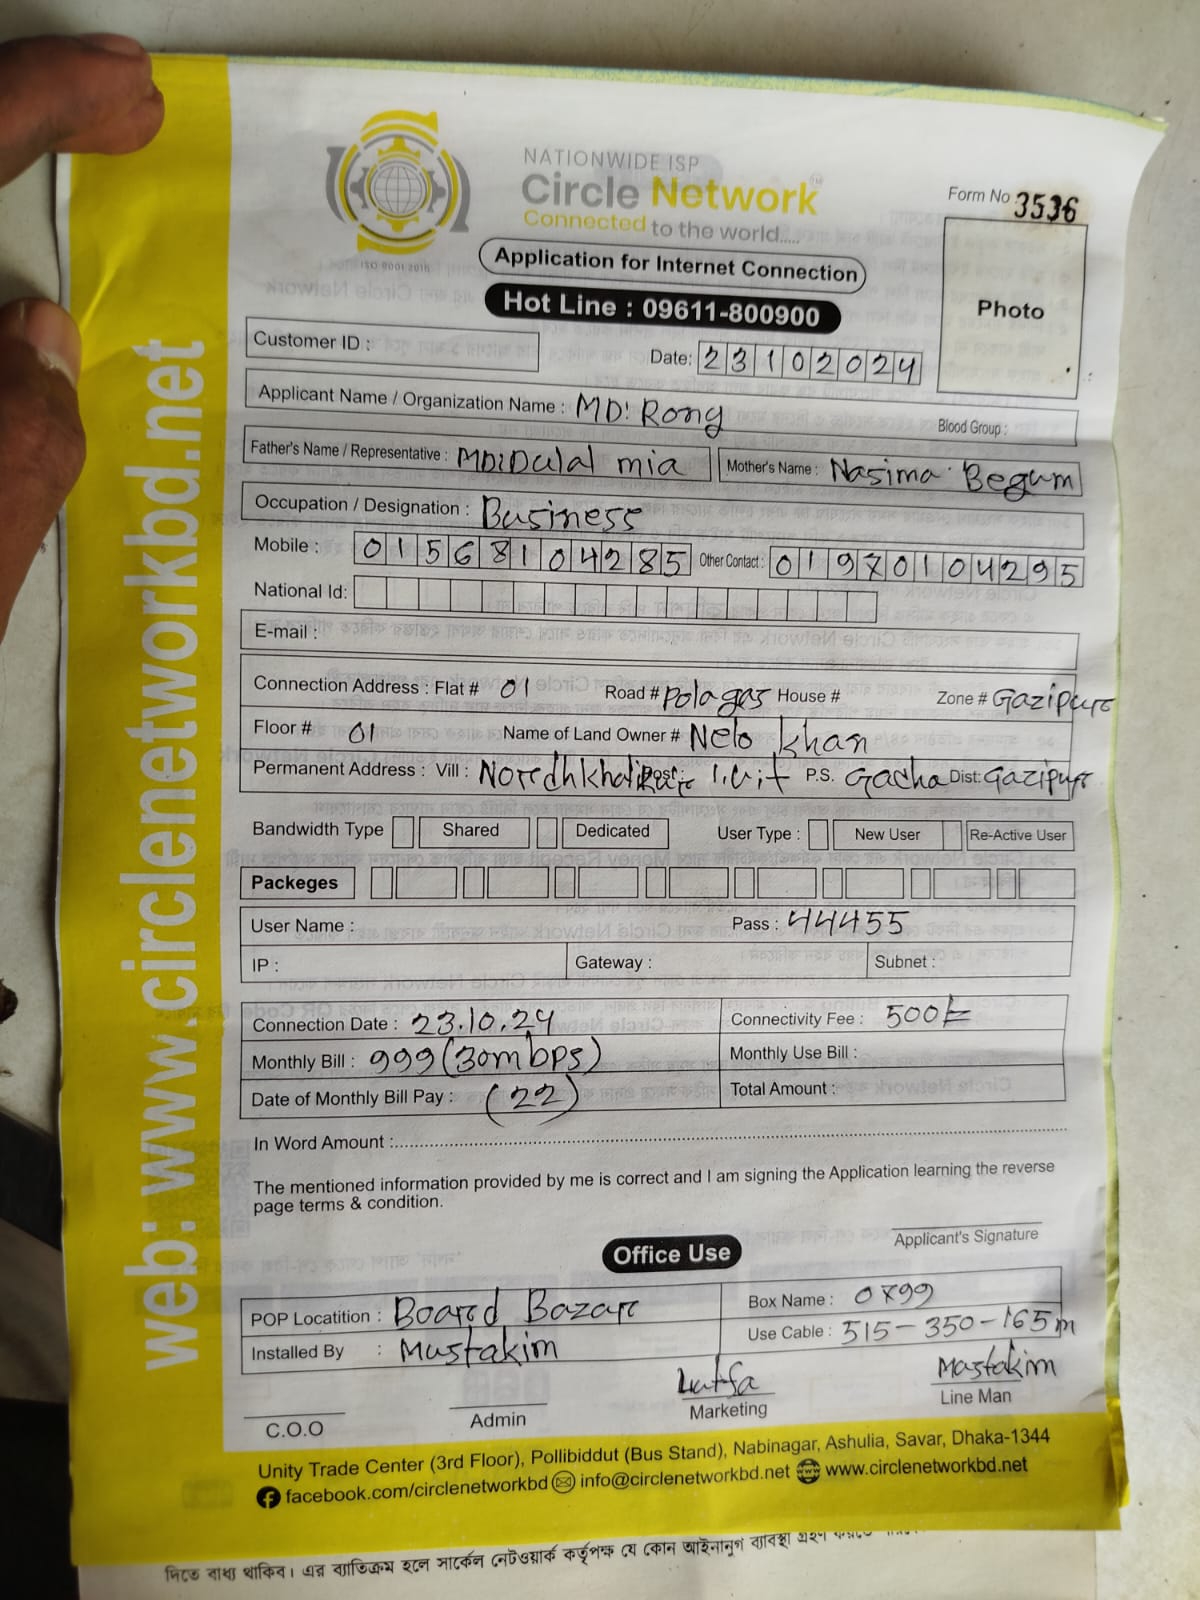 NATIONWIDE ISP
Circle Network
Connected to the world.....
ISO 9001:2015
Form No 3536
Application for Internet Connection
Hot Line : 09611-800900
Photo
Customer ID :
Date: 23102024
Applicant Name / Organization Name : MD: Rony
Blood Group :
Father's Name / Representative : MD: Dulal mia Mother's Name : Nasima Begum
Occupation / Designation : Business
Mobile : 01568104285 Other Contact : 01970104295
National Id:
E-mail :
Connection Address : Flat # 01 Road # Polagas House # Zone # Gazipur
Floor # 01 Name of Land Owner # Nelo khan
Permanent Address : Vill : Post: P.S. Gacha Dist: Gazipur
Bandwidth Type Shared Dedicated User Type : New User Re-Active User
Packeges
User Name : Pass : 44455
IP : Gateway : Subnet :
Connection Date : 23.10.24 Connectivity Fee : 500/=
Monthly Bill : 999 (30mbps) Monthly Use Bill :
Date of Monthly Bill Pay : (22) Total Amount :
In Word Amount :
The mentioned information provided by me is correct and I am signing the Application learning the reverse
page terms & condition.
Applicant's Signature
Office Use
POP Locatition : Board Bazar Box Name : 0X99
Installed By : Mustakim Use Cable : 515-350-165m
Lutfa Mastakim
C.O.O Admin Marketing Line Man
Unity Trade Center (3rd Floor), Pollibiddut (Bus Stand), Nabinagar, Ashulia, Savar, Dhaka-1344
facebook.com/circlenetworkbd info@circlenetworkbd.net www.circlenetworkbd.net
web: www.circlenetworkbd.net
দিতে বাধ্য থাকিব। এর ব্যতিক্রম হলে সার্কেল নেটওয়ার্ক কর্তৃপক্ষ যে কোন আইনানুগ ব্যাবস্থা গ্রহণ